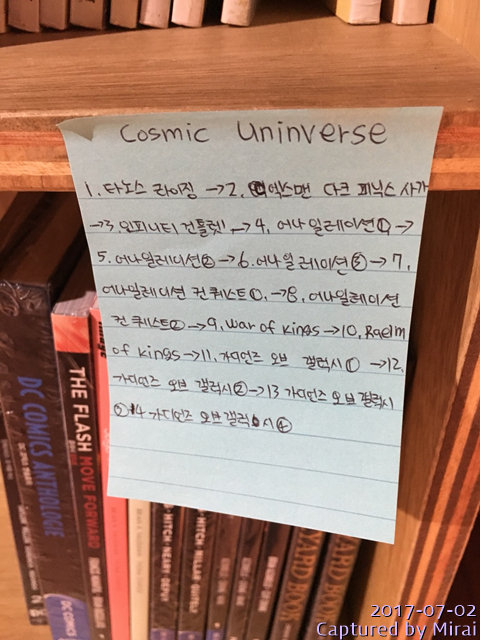 Cosmic Uninverse
1. 타노스 라이징 →2. 엑스맨 다크 피닉스 사가
→3. 인피니티 건틀렛! →4. 어나일레이션① →
5. 어나일레이션② →6. 어나일레이션③ → 7,
어나일레이션 컨퀘스트①. →8, 어나일레이션
컨퀘스트② →9, war of kings →10, Raelm
of kings →11, 가디언즈 오브 갤럭시① →12,
가디언즈 오브 갤럭시② →13 가디언즈 오브 갤럭시
③ 14 가디언즈 오브 갤럭시④
DC COMICS ANTHOLOGIE
THE FLASH MOVE FORWARD
DC COMICS
2017-07-02
Captured by Mirai